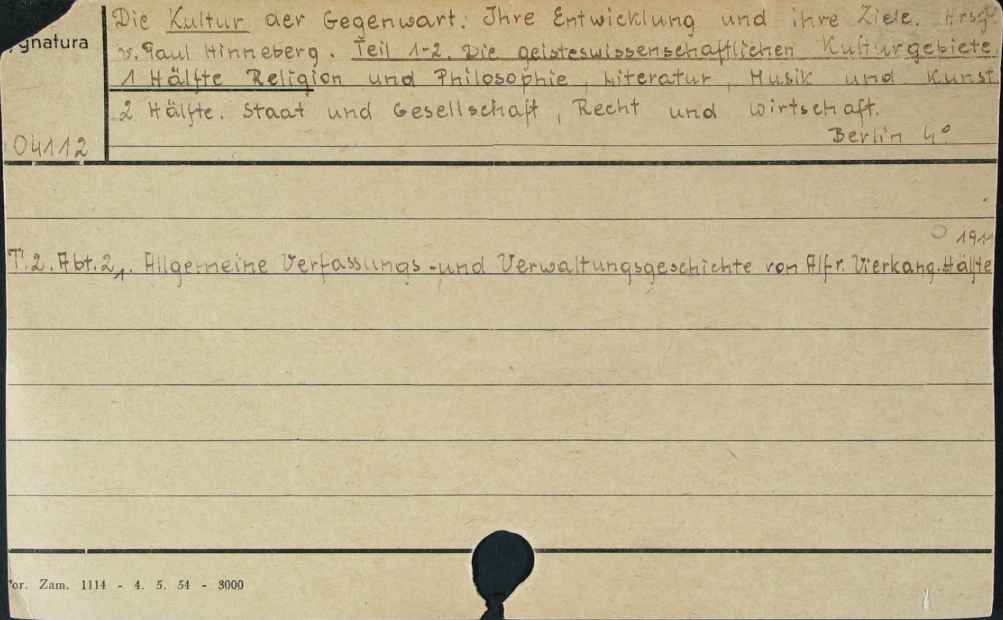 Die Kultur der Gegenwart. Ihre Entwicklung und ihre Ziele. Hrsg.
ygnatura
v. Paul Hinneberg. Teil 1-2. Die geisteswissenschaftlichen Kulturgebiete
1 Hälfte Religion und Philosophie, Literatur, Musik und Kunst
2 Hälfte. Staat und Gesellschaft, Recht und Wirtschaft.
04112
Berlin 4°
1911
T.2. Abt.2,1. Allgemeine Verfassungs-und Verwaltungsgeschichte von Alfr. Vierkang. Hälfte
or. Zam. 1114 - 4. 5. 54 - 3000